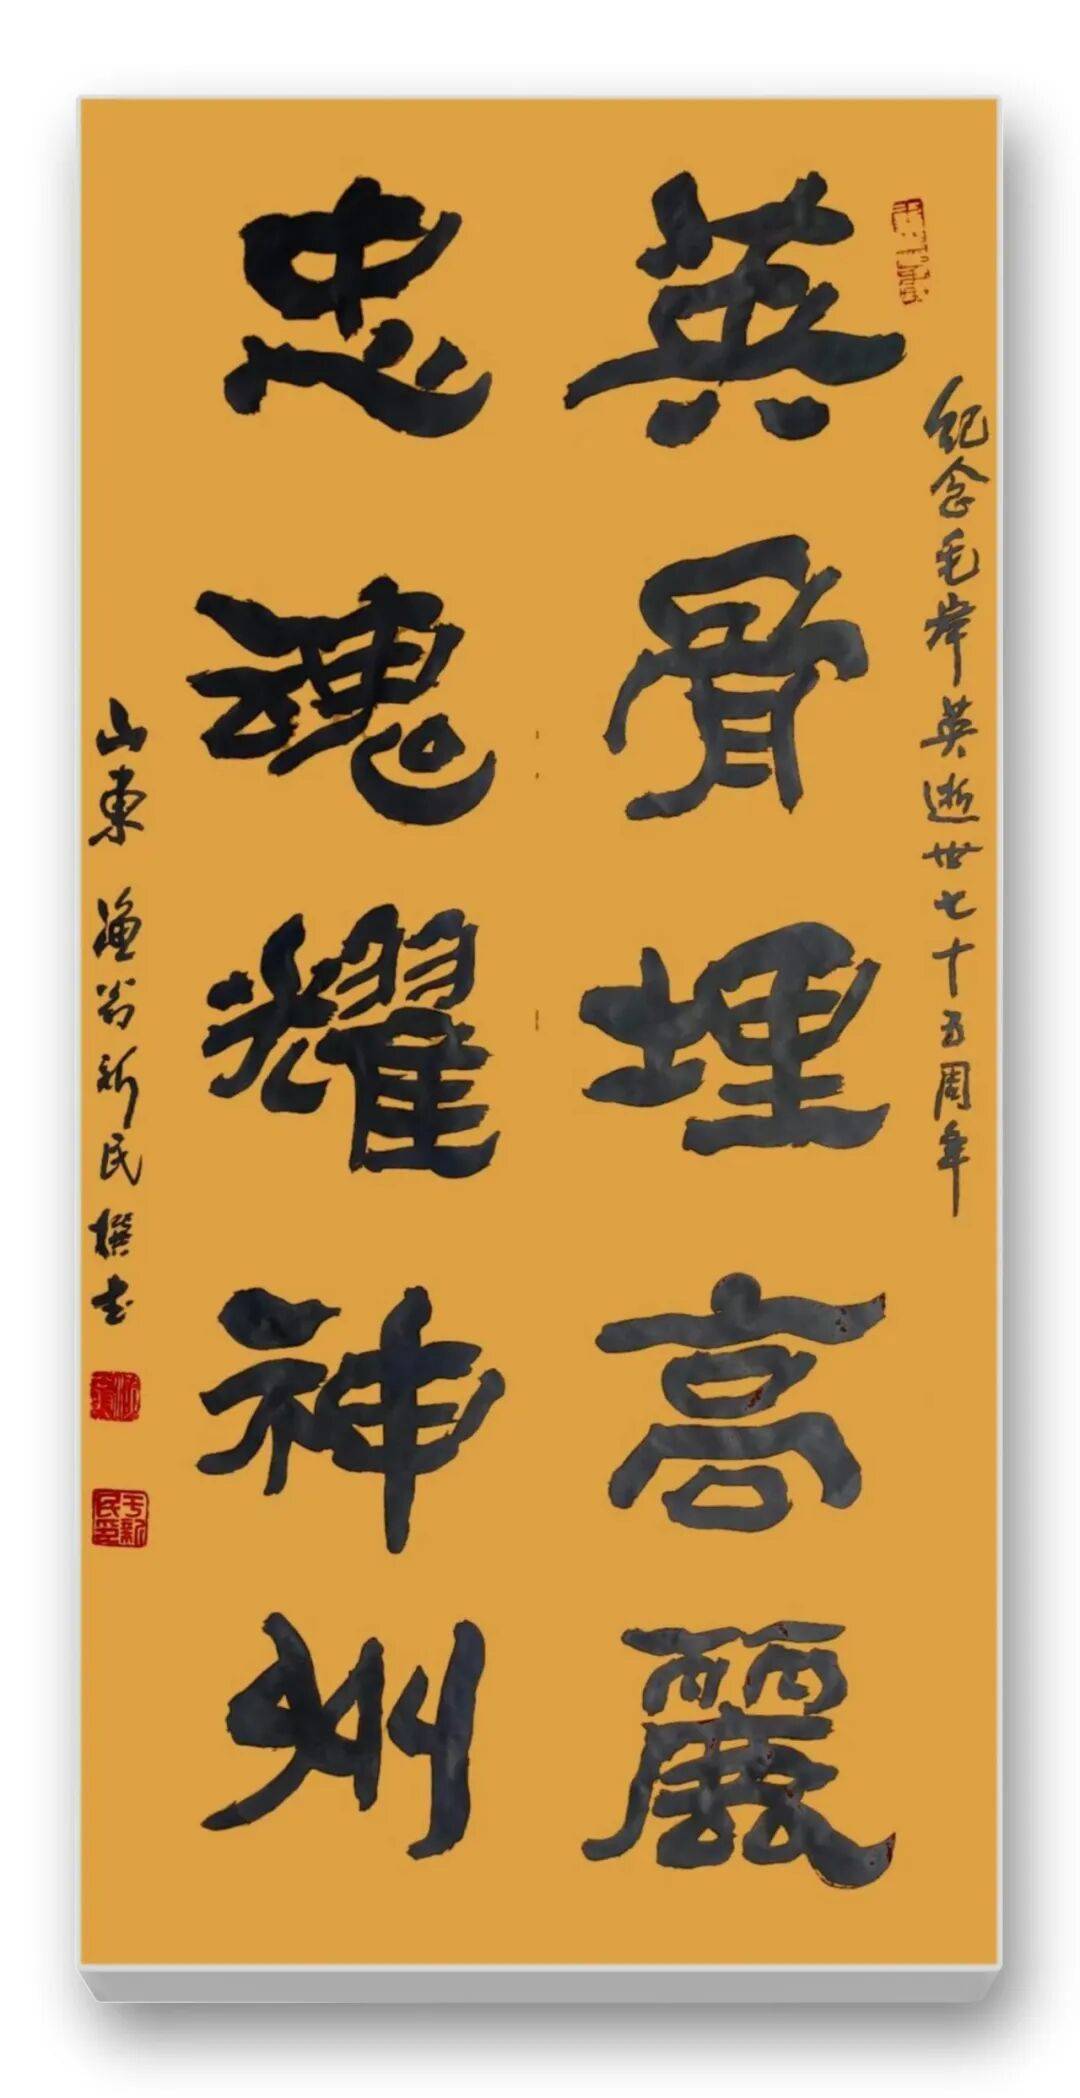 紀念毛岸英逝世七十五周年
英骨埋高麗
忠魂耀神州
山東 漁翁新民撰书
于新民印